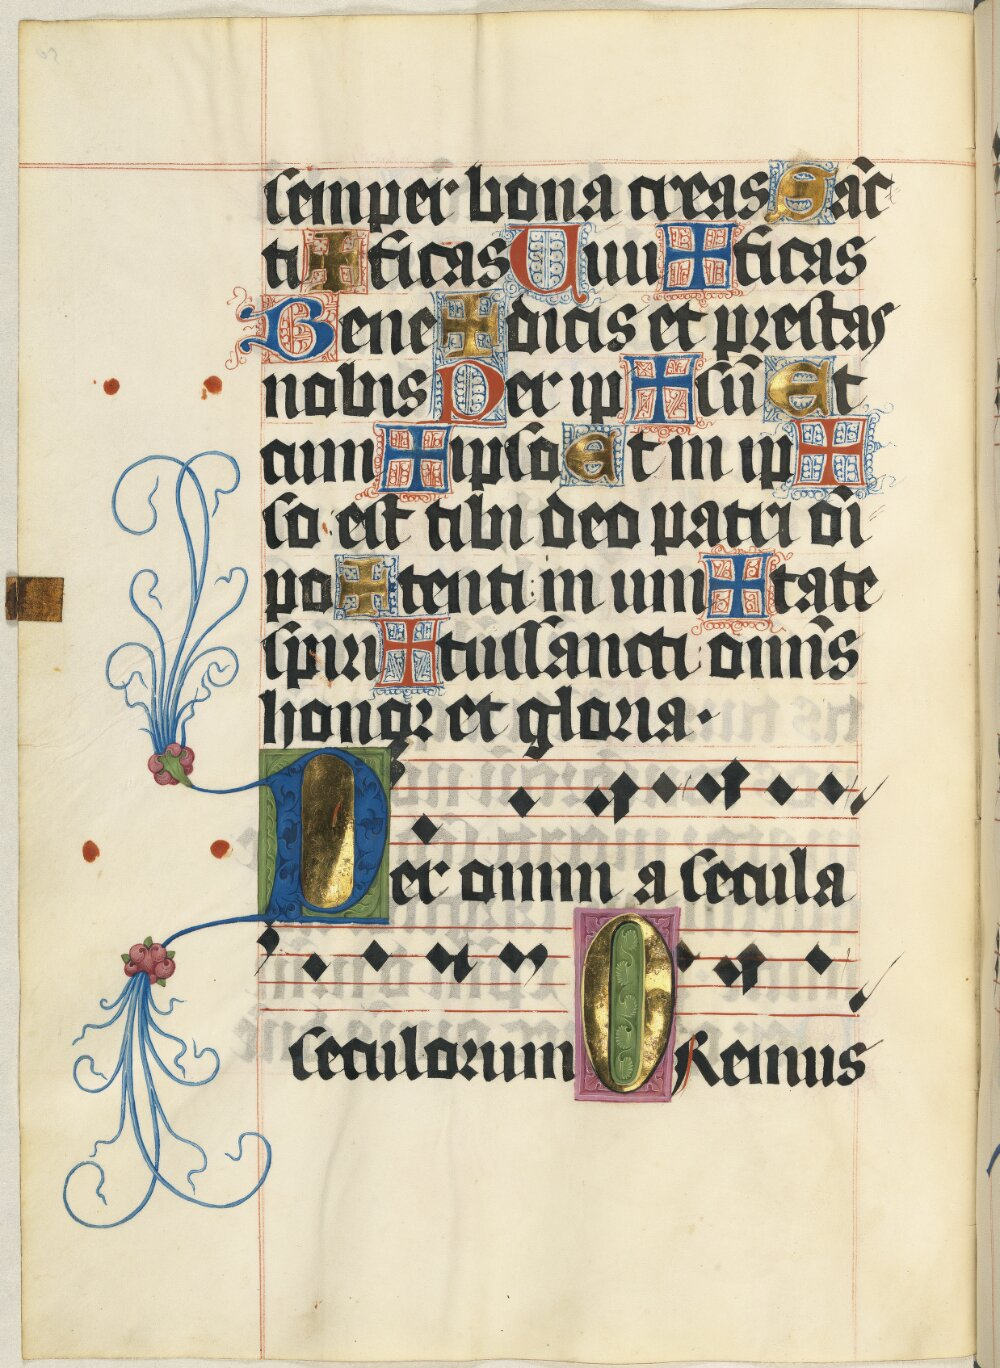 semper bona creas Sāc
ti ✠ ficas Uiui ✠ ficas
Bene ✠ dicis et prestas
nobis Per ip ✠ sū Et
cum ✠ ipso Et in ip ✠
so est tibi deo patri oī
po ✠ tenti in uni ✠ tate
spiri ✠ tussancti omīs
honor et gloria.
Per omni a secula
seculorum ORemus